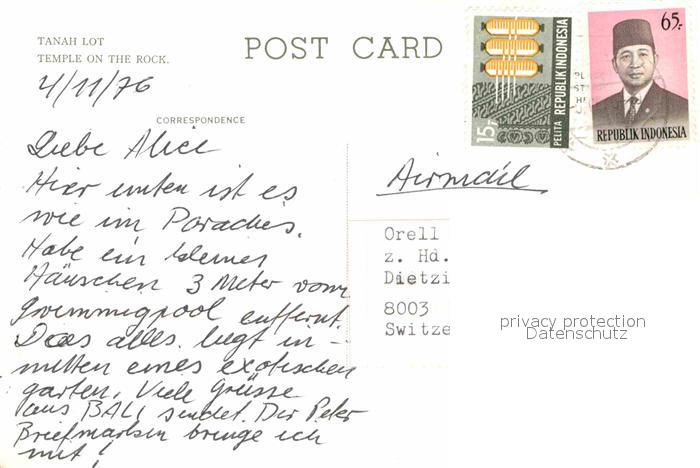 TANAH LOT
TEMPLE ON THE ROCK.
POST CARD
4/11/76
CORRESPONDENCE
Liebe Alice
Hier unten ist es
wie im Paradies.
Habe ein kleines
Häuschen 3 Meter vom
Swimmingpool entfernt.
Das alles liegt in-
mitten eines exotischen
garten. Viele Grüsse
aus BALI sendet Dir Peter
Briefmarken bringe ich
mit!
15.-
PELITA REPUBLIK INDONESIA
65.-
REPUBLIK INDONESIA
Airmail
Orell
z. Hd.
Dietzi
8003
Switze
privacy protection
Datenschutz